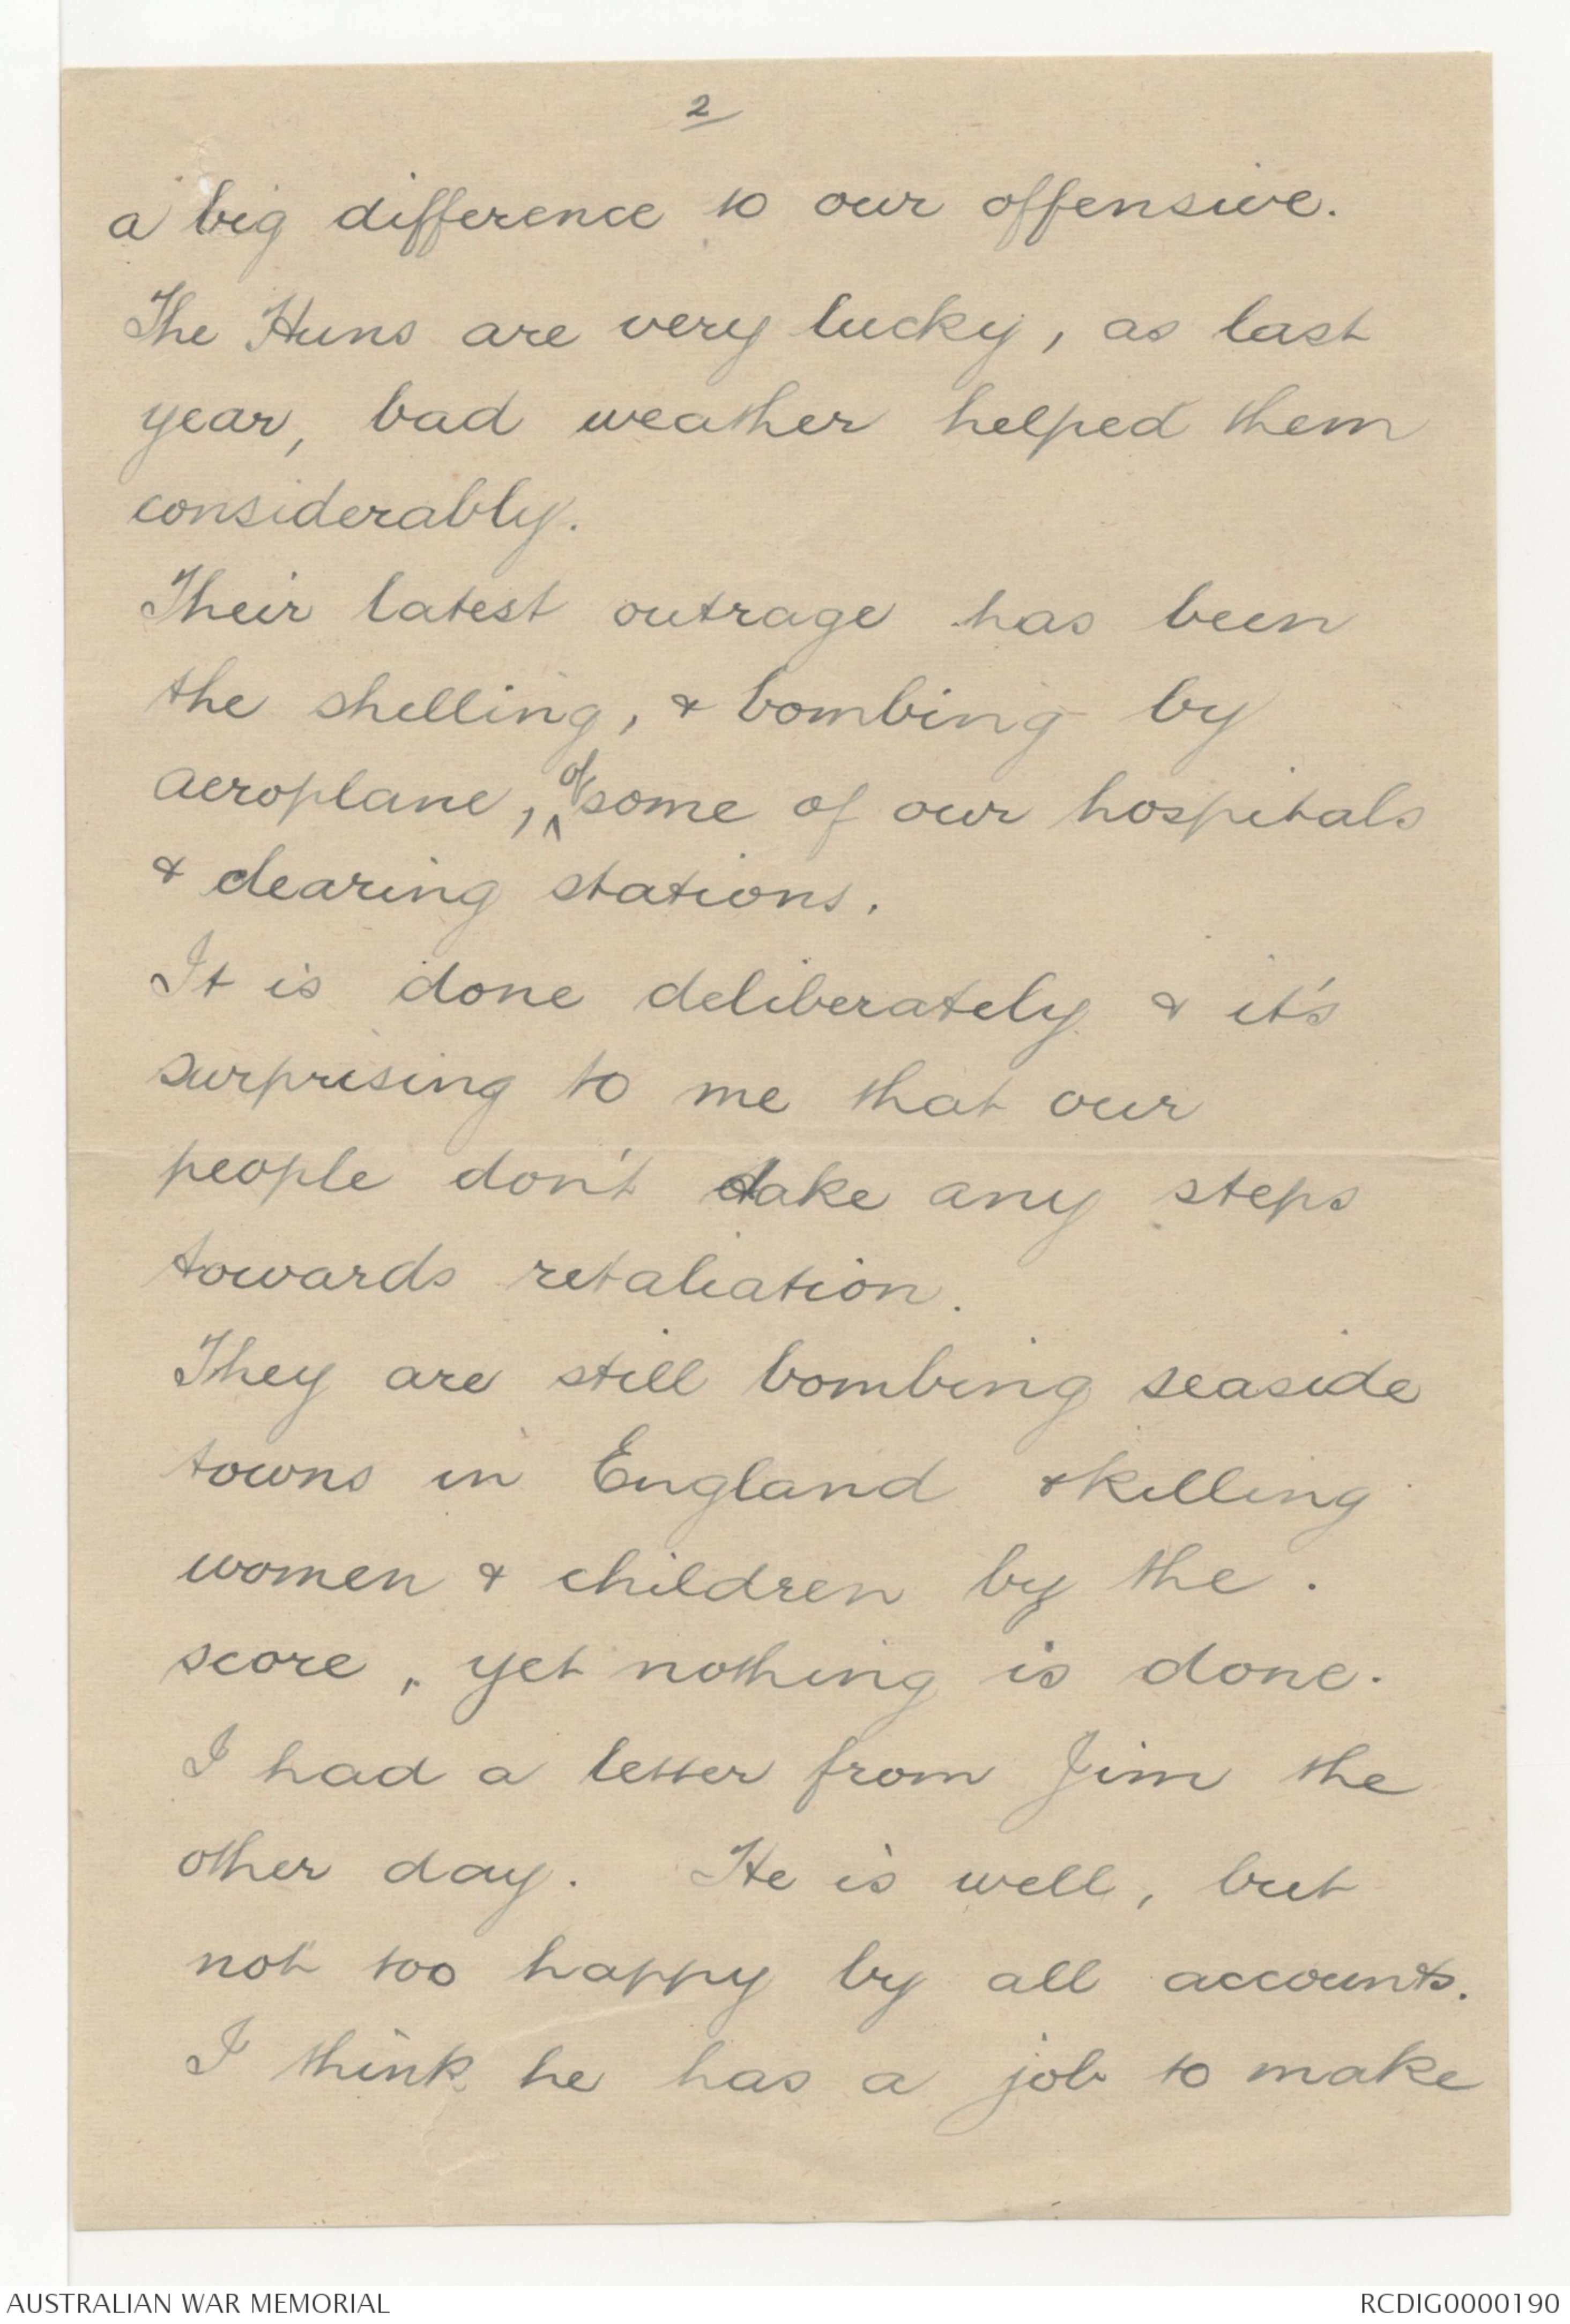 2
a big difference to our offensive.
The Huns are very lucky, as last
year, bad weather helped them
considerably.
Their latest outrage has been
the shelling, & bombing by
aeroplane, of some of our hospitals
& clearing stations.
It is done deliberately & it's
surprising to me that our
people don't take any steps
towards retaliation.
They are still bombing seaside
towns in England & killing
women & children by the.
score, yet nothing is done.
I had a letter from Jim the
other day. He is well, but
not too happy by all accounts.
I think he has a job to make
AUSTRALIAN WAR MEMORIAL
RCDIG0000190